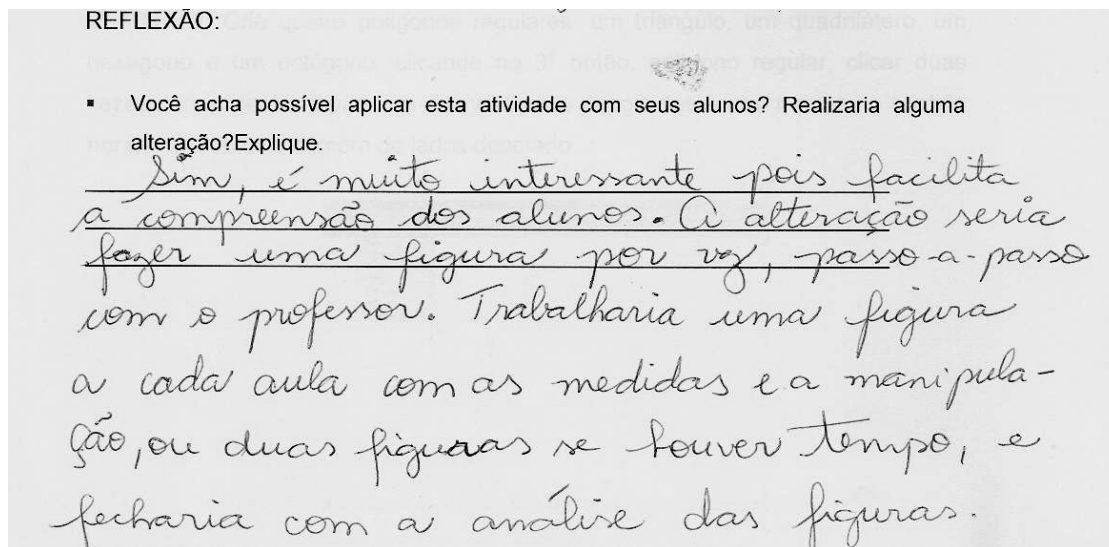 REFLEXÃO:
▪ Você acha possível aplicar esta atividade com seus alunos? Realizaria alguma
alteração?Explique.
Sim, é muito interessante pois facilita
a compreensão dos alunos. A alteração seria
fazer uma figura por vez, passo-a-passo
com o professor. Trabalharia uma figura
a cada aula com as medidas e a manipula-
ção, ou duas figuras se houver tempo, e
fecharia com a análise das figuras.